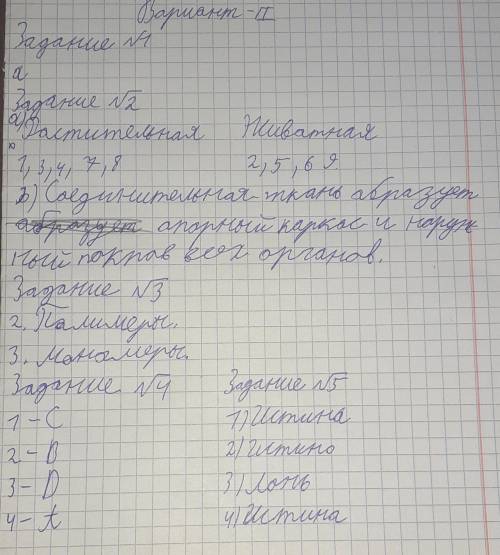 Вариант-II
Задание №1
а
Задание №2
а) Растительная Живатная
1, 3, 4, 7, 8 2, 5, 6 9.
b) Соединительная ткань абразует
абразует апорный каркас и наруж
ный покпов всех органов.
Задание №3
2. Палимеры.
3. Манамеры.
Задание №4 Задание №5
1-C 1) Истина
2-B 2) Истино
3-D 3) Лонь
4-A 4) Истина